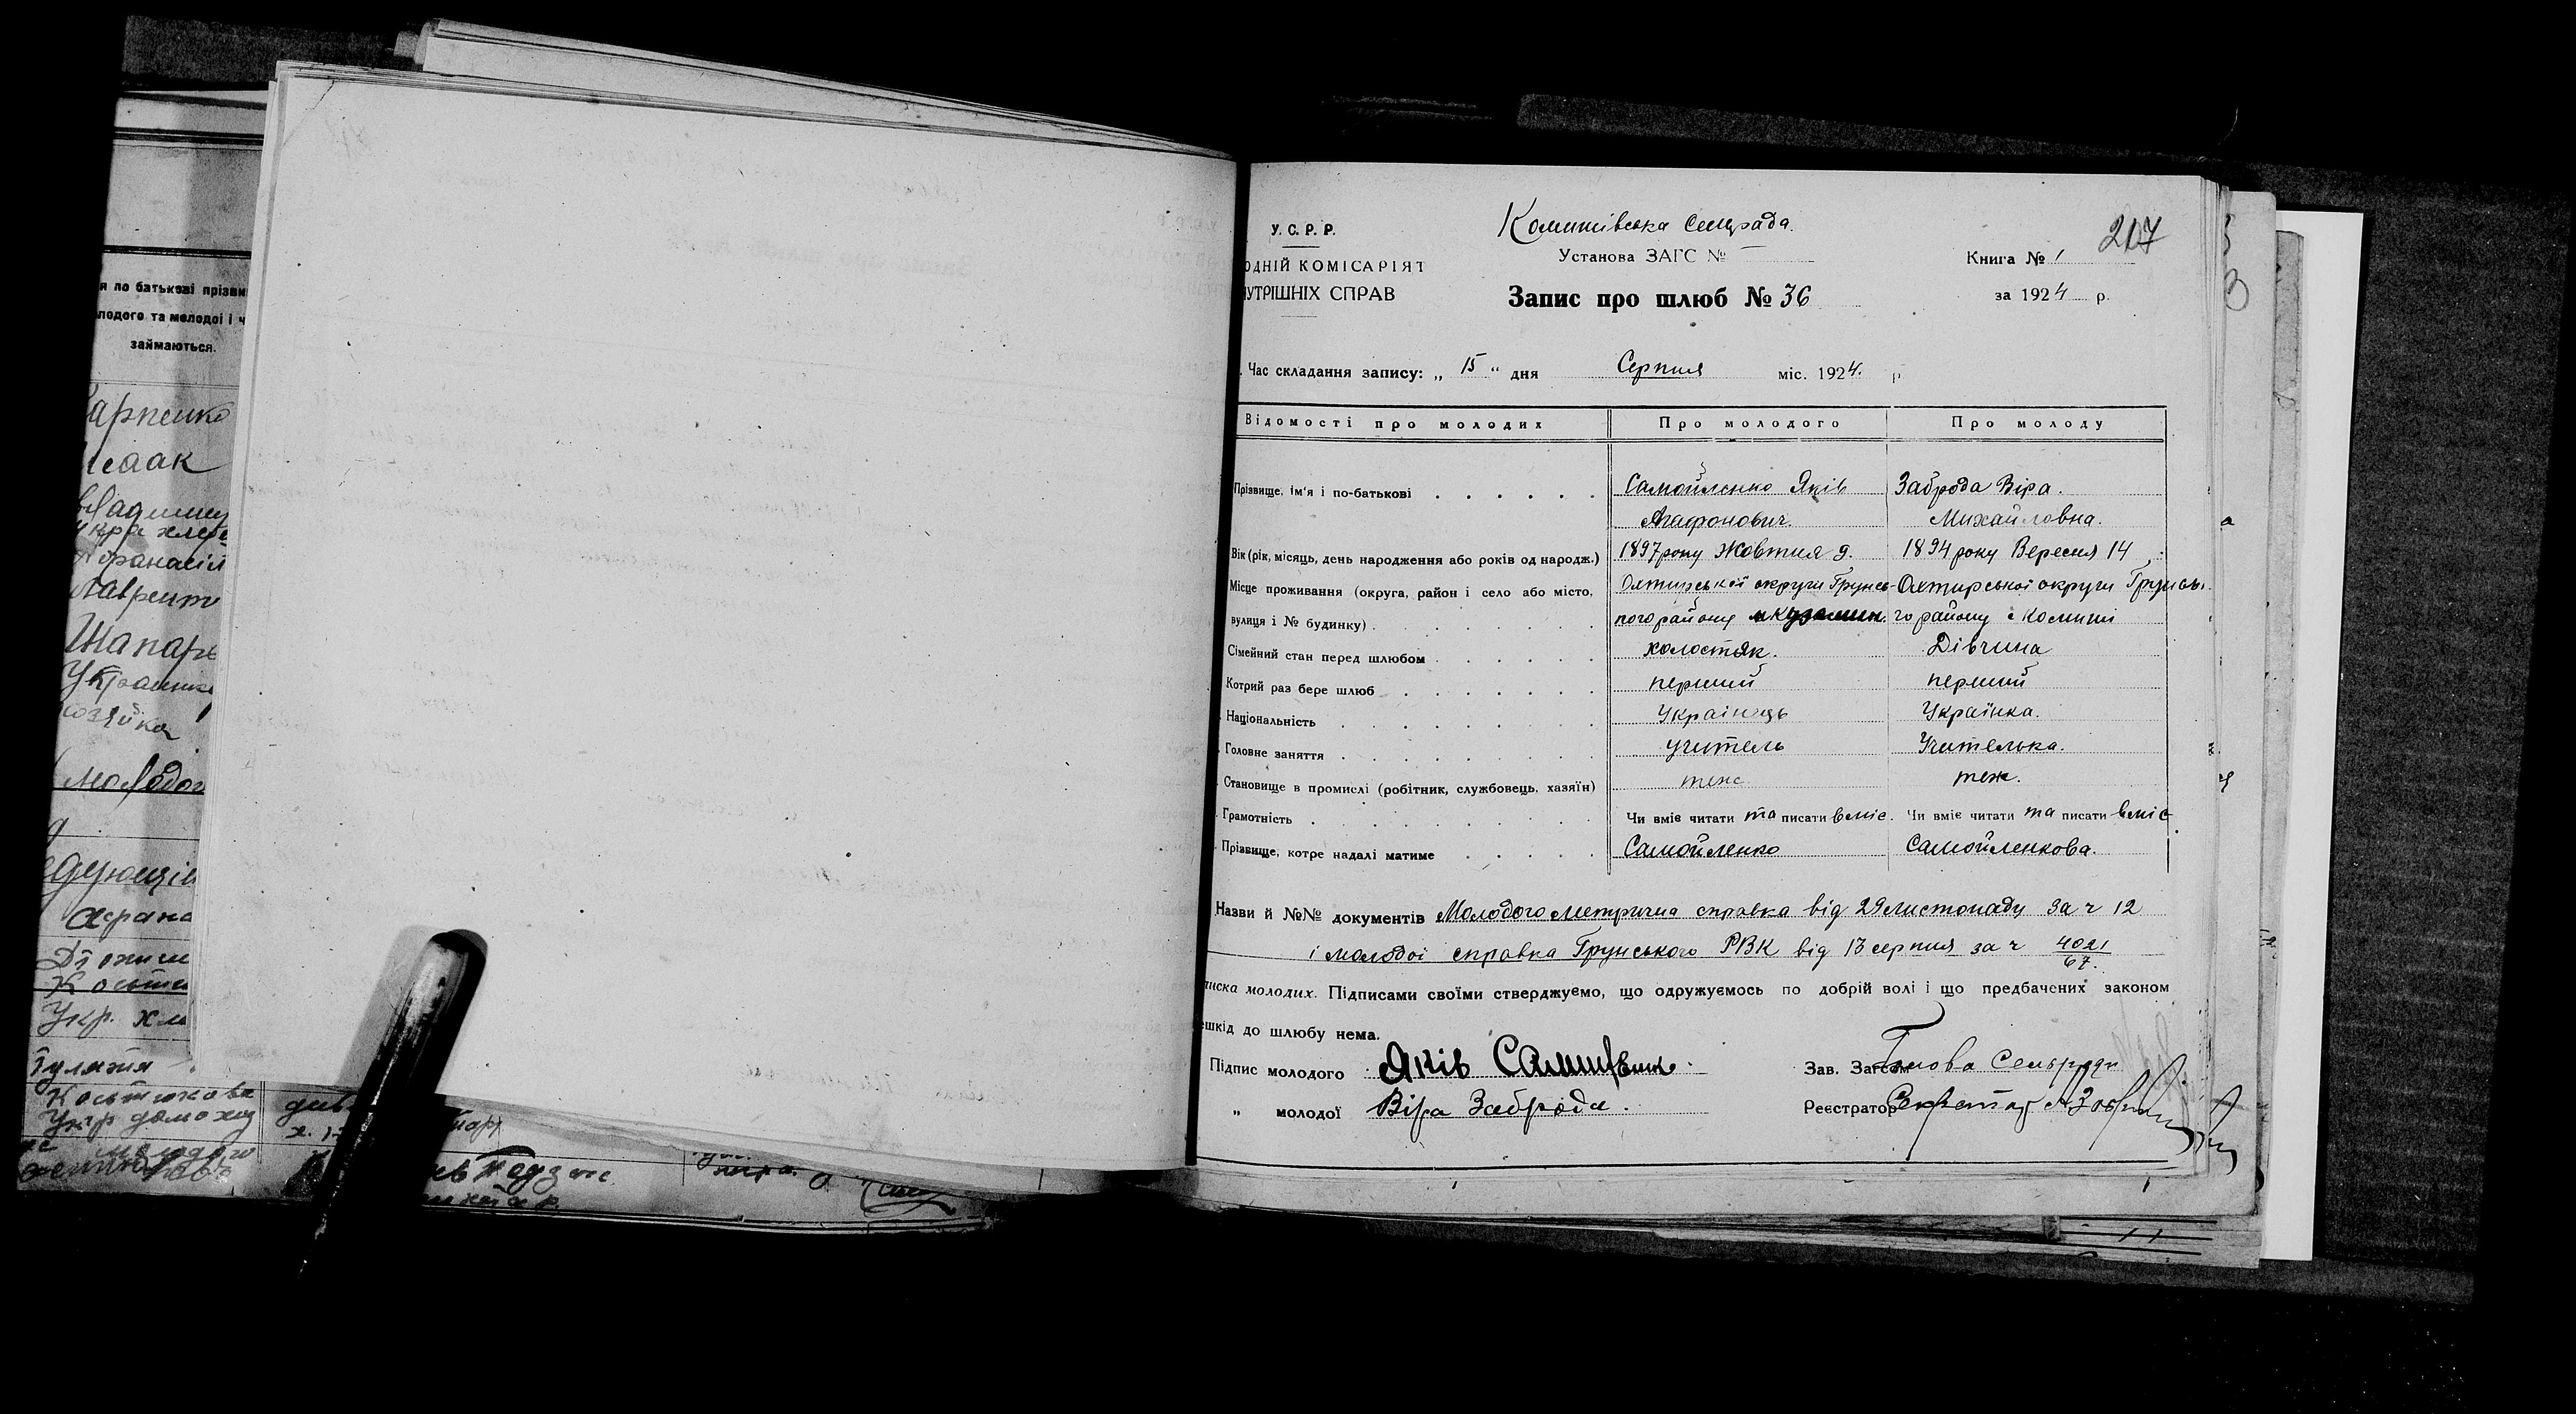 я по батькові прізви
лодого та молодої і ч
займаються.
арпенко
Исаак
Лаврент
Украинка
молодог
Укр. хл
Гуляття
217
Комишівська Сельрада.
У. С. Р. Р.
Установа ЗАГС №
Книга № 1
ОДНІЙ КОМІСАРІЯТ
УТРІШНІХ СПРАВ
Запис про шлюб № 36
за 1924 р.
Час складання запису: „ 15 “ дня Серпня міс. 1924. р
Відомості про молодих Про молодого Про молоду
Прізвище, ім'я і по-батькові Самойленко Яків Заброда Віра.
Агафонович. Михайловна.
Вік (рік, місяць, день народження або років од народж.) 1897 року Жовтня 9. 1894 року Вересня 14
Місце проживання (округа, район і село або місто, Охтирської округи Грунсь- Охтирської округи Грунсь-
вулиця і № будинку) кого району го району с Комиші
Сімейний стан перед шлюбом холостяк. Дівчина
Котрий раз бере шлюб перший перший
Національність Українець Українка.
Головне заняття учитель Учителька.
Становище в промислі (робітник, службовець, хазяїн) теж теж.
Грамотність Чи вміє читати та писати вміє. Чи вміє читати та писати вміє
Прізвище, котре надалі матиме Самойленко Самойленкова.
Назви й №№ документів Молодого метрична справка від 29 листопаду за ч 12
і молодої справка Грунського РВК від 13 серпня за ч 4021/67.
иска молодих. Підписами своїми стверджуємо, що одружуємось по добрій волі і що предбачених законом
ешкід до шлюбу нема.
Підпис молодого Яків Зав. Загсом Голова Сельради
„ молодої Віра Заброда. Реєстратор Секретар